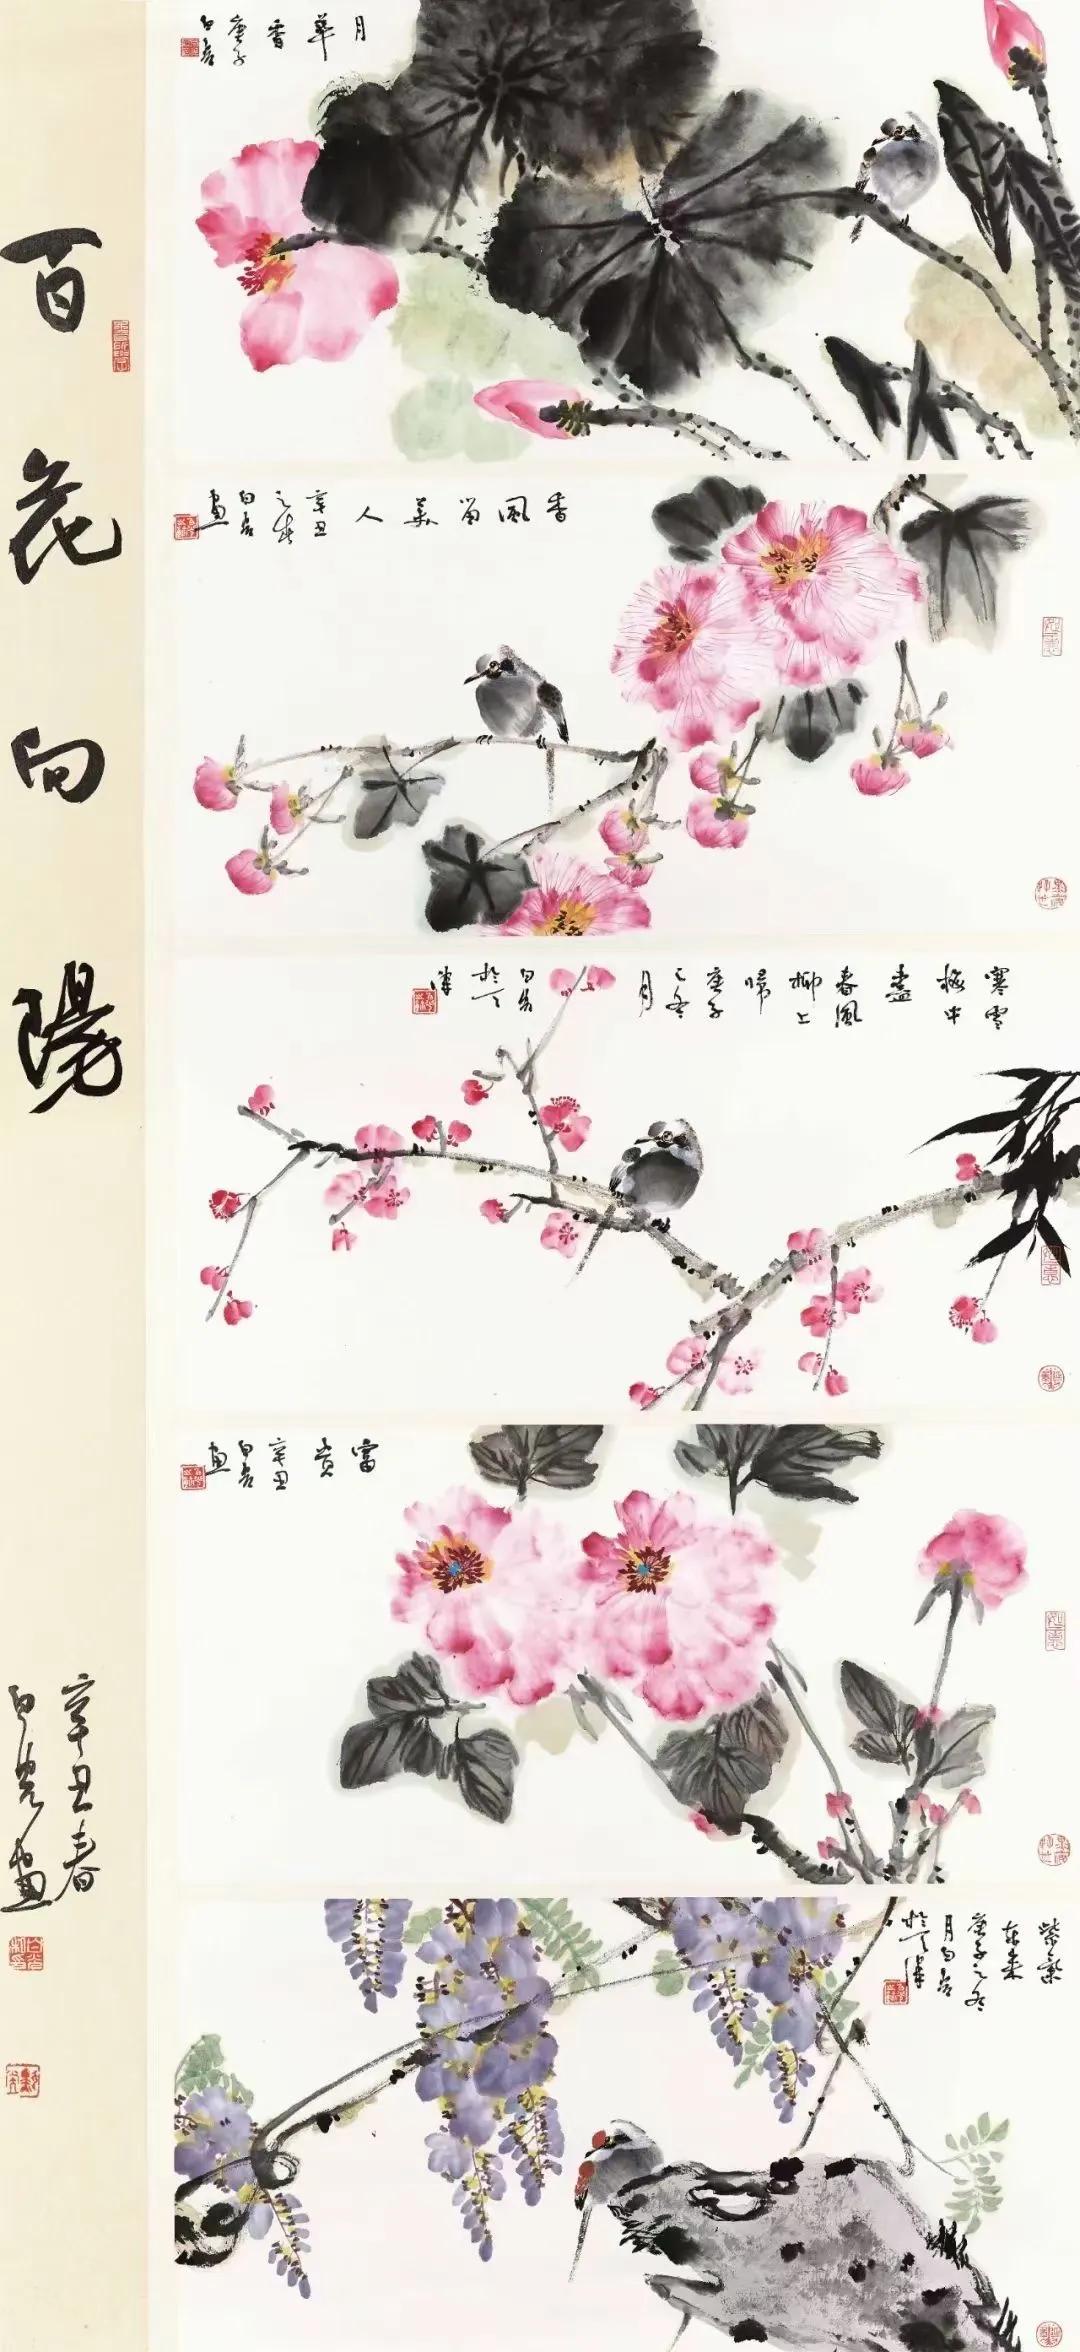 百花向陽
辛丑春
白光畫
月華香
庚子
白光
香風留美人
辛丑
之春
白光
畫
寒雪
梅中
盡
春風
柳上
歸
庚子
之冬
月
白光
於天
津
富貴
辛丑
白光
畫
紫氣
東來
庚子之冬
月白光
於天津